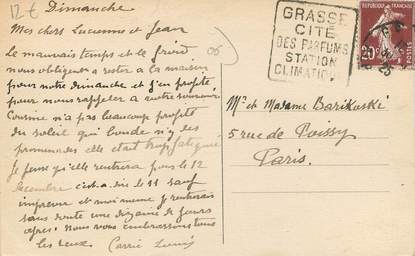 12€
Dimanche
06
Mes chers Lucienne et Jean
Le mauvais temps et le froid
nous obligent a rester a la maison
pour notre dimanche et j'en profite
pour nous rappeler a votre souvenir
n'a pas beaucoup profité
du soleil qui inonde ni des
promenades elle etait trop fatiguée
Je pense qu'elle rentrera pour le 12
decembre c'est a dire le 11 sauf
imprevu et moi meme je rentrerai
sans doute une dizaine de jours
apres. Nous vous embrassons tous
les deux. Louis
GRASSE
CITÉ
DES PARFUMS
STATION
CLIMATIQUE
REPUBLIQUE FRANÇAISE
20c
POSTES
Mr et Madame Barikoski
5 rue de Poissy
Paris.